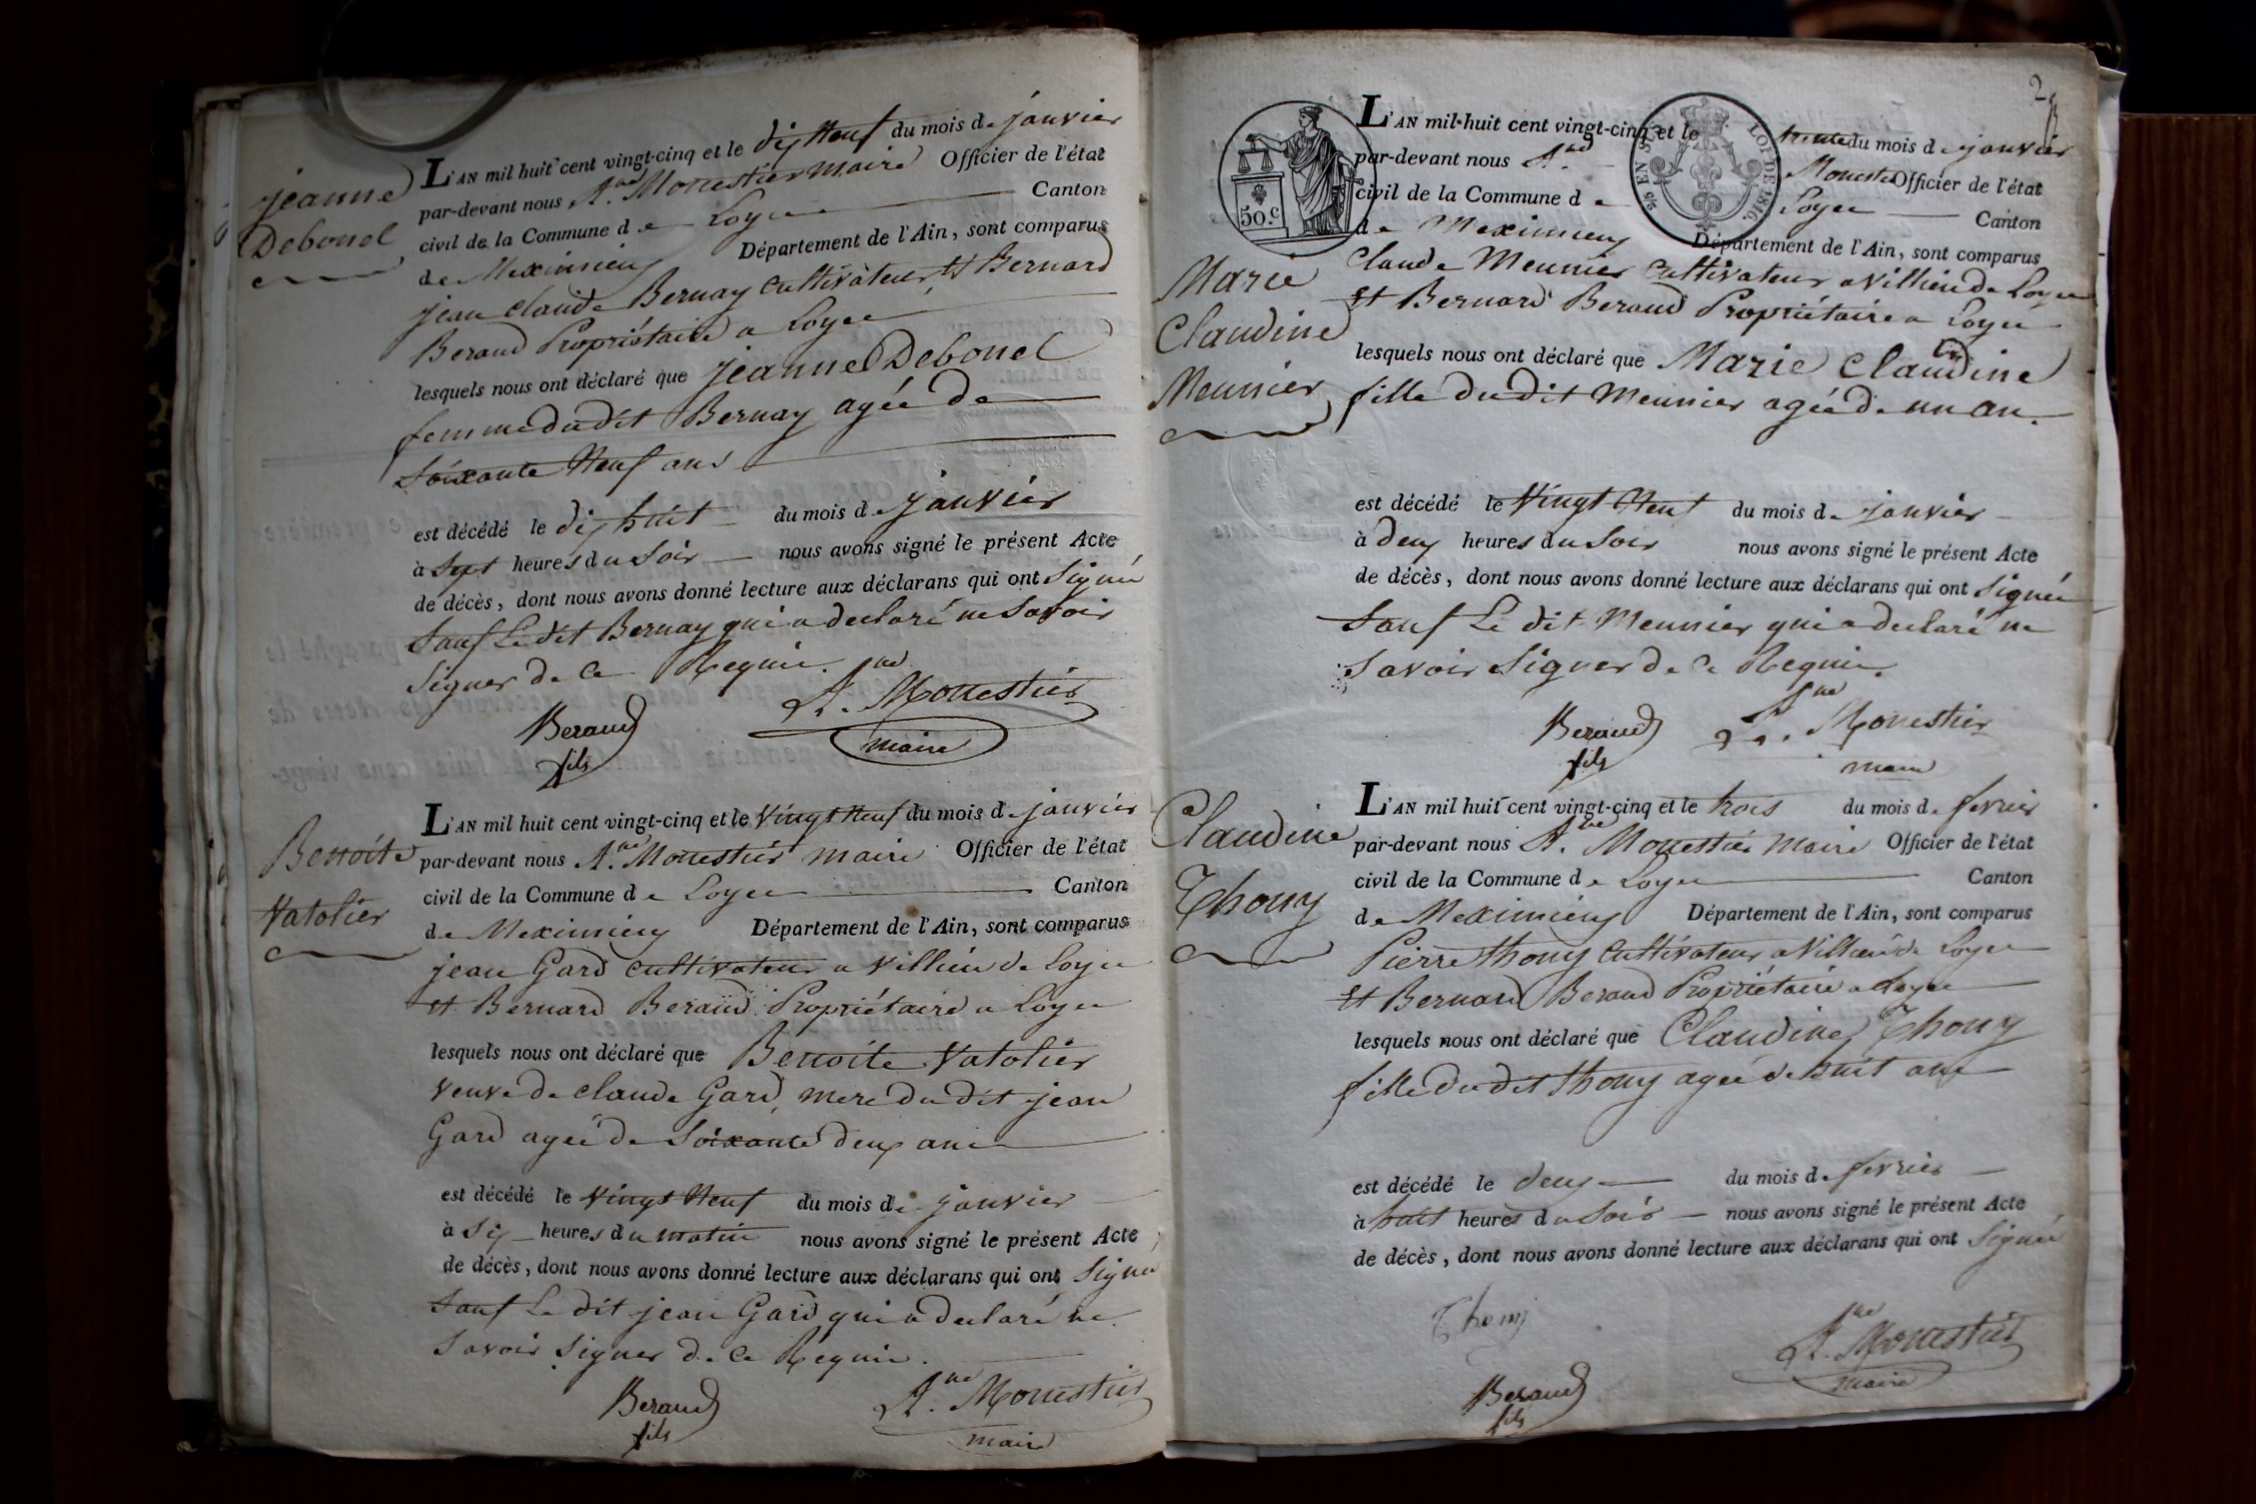 jeanne
Debonel
L'AN mil huit cent vingt-cinq et le dix Neuf du mois de janvier
par-devant nous A.ne Monestier maire Officier de l'état
civil de la Commune de Loyes Canton
de Meximieux Département de l'Ain, sont comparus
jean claude Bernay cultivateur, et Bernard
Beraud Propriétaire a Loyes
lesquels nous ont déclaré que jeanne Debonel
femme du dit Bernay agée de
Soixante Neuf ans
est décédé le dix huit du mois de janvier
à Sept heures du Soir nous avons signé le présent Acte
de décès, dont nous avons donné lecture aux déclarans qui ont Signé
Sauf Le dit Bernay qui a declaré ne Savoir
Signer de ce Requis.
Beraud
fils
A.ne Monestier
maire
Benoite
Vatolier
L'AN mil huit cent vingt-cinq et le Vingt Neuf du mois de janvier
par-devant nous A.ne Monestier maire Officier de l'état
civil de la Commune de Loyes Canton
de Meximieux Département de l'Ain, sont comparus
jean Gard cultivateur a Villieu de Loyes
et Bernard Beraud Propriétaire a Loyes
lesquels nous ont déclaré que Benoite Vatolier
Veuve de claude Gard, mere du dit jean
Gard agée de Soixante deux ans
est décédé le Vingt Neuf du mois de janvier
à Six heures du matin nous avons signé le présent Acte
de décès, dont nous avons donné lecture aux déclarans qui ont Signé
Sauf Le dit jean Gard qui a declaré ne
Savoir Signer de ce Requis.
Beraud
fils
A.ne Monestier
maire
2
50.c
EN SUS
LOI DE 1816.
Marie
Claudine
Meunier
L'AN mil huit cent vingt-cinq et le trente du mois de janvier
par-devant nous A.ne Monestier Officier de l'état
civil de la Commune de Loyes Canton
de Meximieux Département de l'Ain, sont comparus
Claude Meunier cultivateur a Villieu de Loyes
et Bernard Beraud Propriétaire a Loyes
lesquels nous ont déclaré que Marie Claudine
fille du dit Meunier agée de un an.
est décédé le Vingt Neuf du mois de janvier
à deux heures du Soir nous avons signé le présent Acte
de décès, dont nous avons donné lecture aux déclarans qui ont Signé
Sauf Le dit Meunier qui a declaré ne
Savoir Signer de ce Requis.
Beraud
fils
A.ne Monestier
maire
Claudine
Thouy
L'AN mil huit cent vingt-cinq et le trois du mois de fevrier
par-devant nous A.ne Monestier maire Officier de l'état
civil de la Commune de Loyes Canton
de Meximieux Département de l'Ain, sont comparus
Pierre Thouy cultivateur a Villieu de Loyes
et Bernard Beraud Propriétaire a Loyes
lesquels nous ont déclaré que Claudine Thouy
fille du dit Thouy agée de huit ans
est décédé le deux du mois de fevrier
à huit heures du Soir nous avons signé le présent Acte
de décès, dont nous avons donné lecture aux déclarans qui ont Signé
Thouy
Beraud
fils
A.ne Monestier
maire